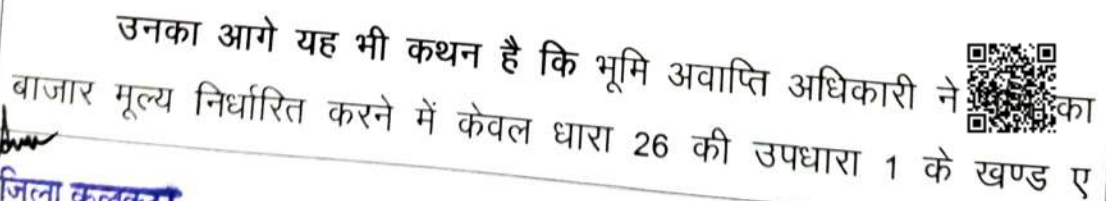 उनका आगे यह भी कथन है कि भूमि अवाप्ति अधिकारी ने का
बाजार मूल्य निर्धारित करने में केवल धारा 26 की उपधारा 1 के खण्ड ए
जिला कलक्टर